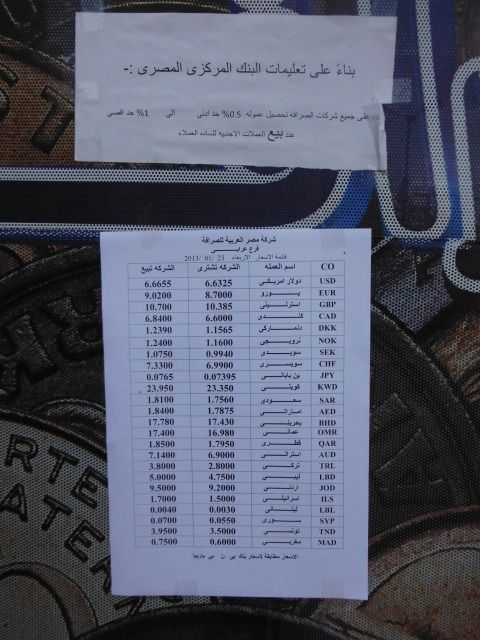 بناءً على تعليمات البنك المركزى المصرى :-
على جميع شركات الصرافه تحصيل عموله 0.5% حد ادنى الى 1% حد اقصى
عند بيع العملات الاجنبيه للساده العملاء
شركة مصر العربية للصرافة
فرع عرابى
قائمة الاسعار الاربعاء 23 /01 /2013
CO اسم العمله الشركه تشترى الشركه تبيع
USD دولار امريكى 6.6325 6.6655
EUR يورو 8.7000 9.0200
GBP استرلينى 10.385 10.700
CAD كندى 6.6000 6.8400
DKK دنماركى 1.1565 1.2390
NOK نرويجى 1.1600 1.2400
SEK سويدى 0.9940 1.0750
CHF سويسرى 6.9900 7.3300
JPY ين يابانى 0.07395 0.0765
KWD كويتى 23.350 23.950
SAR سعودى 1.7560 1.8100
AED اماراتى 1.7875 1.8400
BHD بحرينى 17.430 17.780
OMR عمانى 16.980 17.400
QAR قطرى 1.7950 1.8500
AUD استرالى 6.9000 7.1400
TRL تركى 2.8000 3.8000
LBD ليبى 4.7500 5.0000
JOD اردنى 9.2000 9.5000
ILS اسرائيلى 1.5000 1.7000
LBL لبنانى 0.0030 0.0040
SYP سورى 0.0550 0.0700
TND تونسى 3.5000 3.9500
MAD مغربى 0.6000 0.7500
الاسعار مطابقة لاسعار بنك بى ن بى باريبا
RTE
ATE